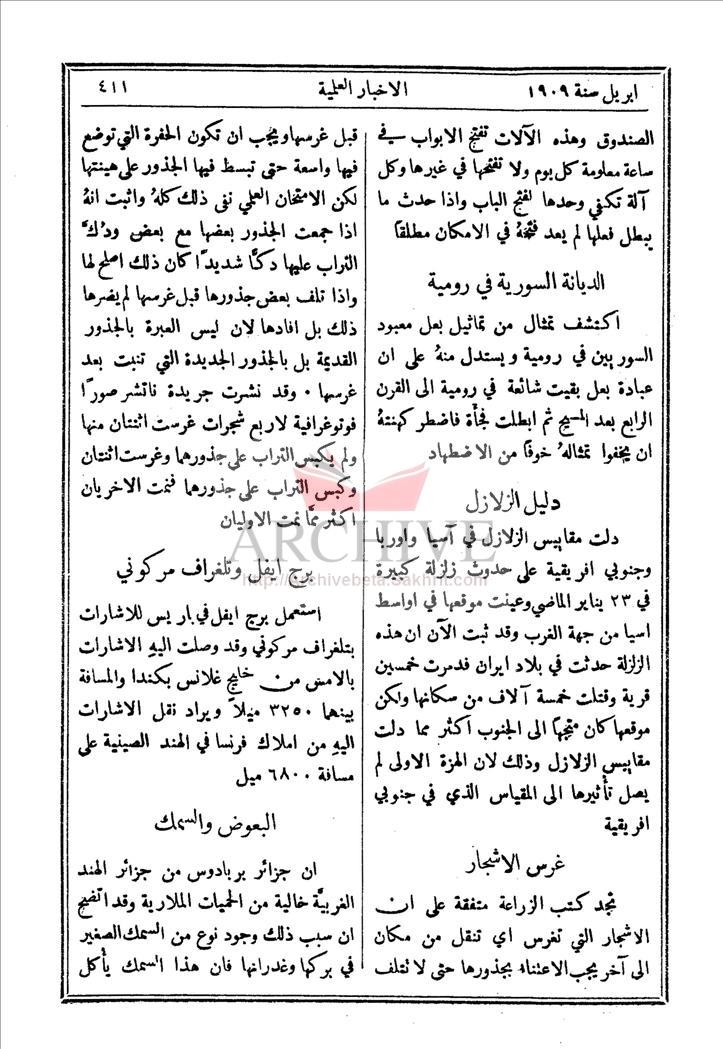 ابريل سنة ١٩٠٩
الاخبار العلمية
٤١١
الصندوق وهذه الآلات تفتح الابواب في
ساعة معلومة كل يوم ولا تفتحها في غيرها وكل
آلة تكفي وحدها لفتح الباب واذا حدث ما
يبطل فعلها لم يعد فتحهُ في الامكان مطلقاً
الديانة السورية في رومية
اكتشف تمثال من تماثيل بعل معبود
السوريين في رومية ويستدل منهُ على ان
عبادة بعل بقيت شائعة في رومية الى القرن
الرابع بعد المسيح ثم ابطلت فجأة فاضطر كهنتهُ
ان يخفوا تمثالهُ خوفاً من الاضطهاد
دليل الزلازل
دلت مقاييس الزلازل في آسيا واوربا
وجنوبي افريقية على حدوث زلزلة كبيرة
في ٢٣ يناير الماضي وعينت موقعها في اواسط
اسيا من جهة الغرب وقد ثبت الآن ان هذه
الزلزلة حدثت في بلاد ايران فدمرت خمسين
قرية وقتلت خمسة آلاف من سكانها ولكن
موقعها كان متجهاً الى الجنوب اكثر مما دلت
مقاييس الزلازل وذلك لان الهزة الاولى لم
يصل تأثيرها الى المقياس الذي في جنوبي
افريقية
غرس الاشجار
تجد كتب الزراعة متفقة على ان
الاشجار التي تغرس اي تنقل من مكان
الى آخر يجب الاعتناء بجذورها حتى لا تتلف
قبل غرسها ويجب ان تكون الحفرة التي توضع
فيها واسعة حتى تبسط فيها الجذور على هينتها
لكن الامتحان العلمي نفى ذلك كلهُ واثبت انهُ
اذا جمعت الجذور بعضها مع بعض ودُكَّ
التراب عليها دكّاً شديداً كان ذلك اصلح لها
واذا تلف بعض جذورها قبل غرسها لم يضرها
ذلك بل افادها لان ليس العبرة بالجذور
القديمة بل بالجذور الجديدة التي تنبت بعد
غرسها . وقد نشرت جريدة ناتشر صوراً
فوتوغرافية لاربع شجرات غرست اثنتان منها
ولم يكبس التراب على جذورهما وغرست اثنتان
وكبس التراب على جذورهما فنمت الاخريان
اكثر ممَّا نمت الاوليان
برج ايفل وتلغراف مركوني
استعمل برج ايفل في باريس للاشارات
بتلغراف مركوني وقد وصلت اليهِ الاشارات
بالامس من خليج غلانس بكندا والمسافة
بينهما ٣٢٥٠ ميلاً ويراد نقل الاشارات
اليهِ من املاك فرنسا في الهند الصينية على
مسافة ٦٨٠٠ ميل
البعوض والسمك
ان جزائر بربادوس من جزائر الهند
الغربيَّة خالية من الحميات الملارية وقد اتضح
ان سبب ذلك وجود نوع من السمك الصغير
في بركها وغدرانها فان هذا السمك يأكل
ARCHIVE
http://Archivebeta.Sakhrit.com